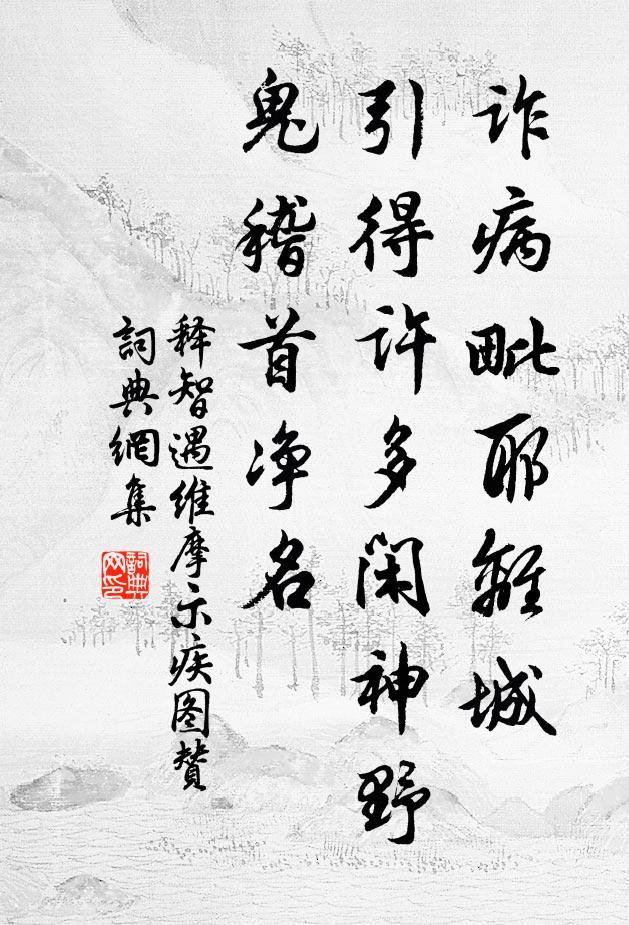 诈病毗耶離城
引得许多閑神野
鬼稽首净名
释智遇维摩示疾图赞
詞典網集
詞典网印